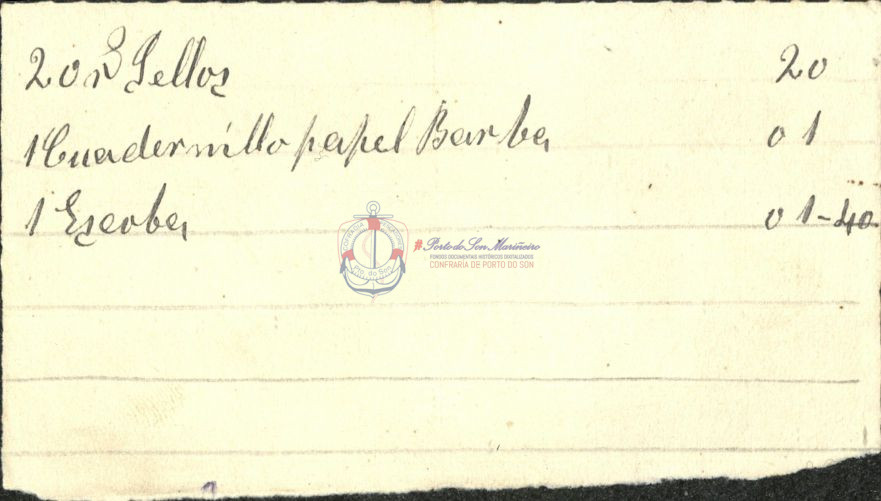 20 rs Sellos 20
1 Cuadernillo papel Barba 01
1 Escoba 01-40
COFRADIA PESCADORES
Pto. do Son
#Porto do Son Mariñeiro
FONDOS DOCUMENTAIS HISTÓRICOS DIXITALIZADOS
CONFRARÍA DE PORTO DO SON